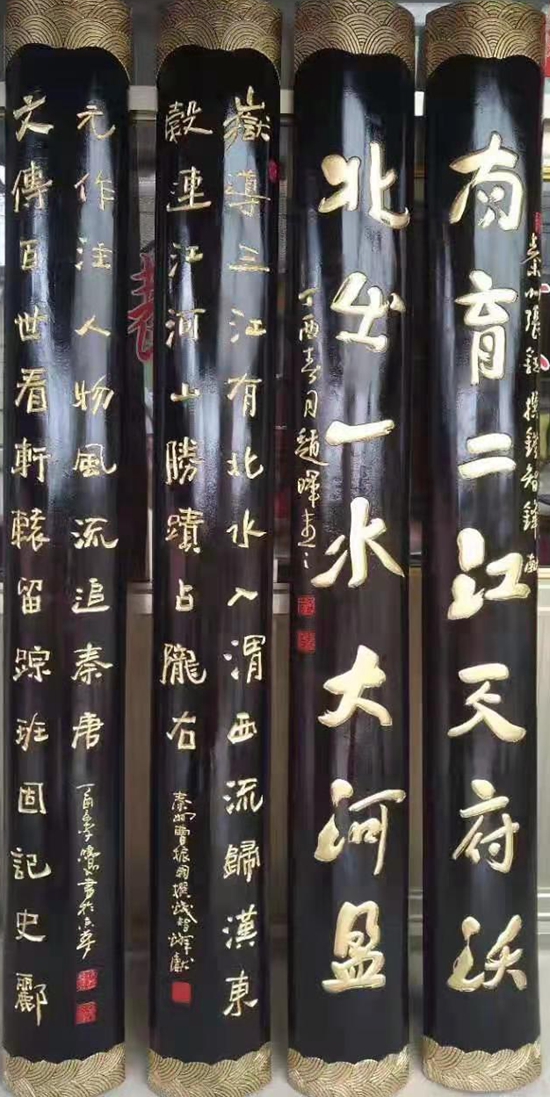 秦州張撰錢智鋒獻
南育二江天府沃
北出一水大河盈
丁酉春月趙暉書之
嶽導三江有北水入渭西流歸漢東
穀連江河山勝蹟占隴右
秦州曹振國撰錢智鋒獻
文傳百世看軒轅留踪班固記史酈
元作注人物風流追秦唐
丁酉書於